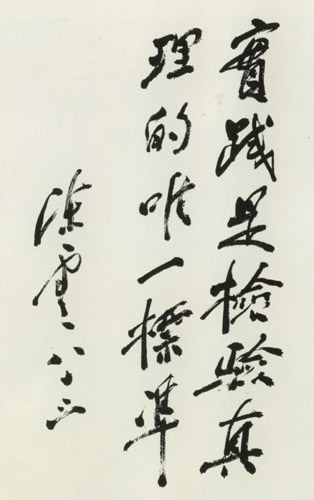 實踐是檢驗真
理的唯一標準
陳雲 八十二